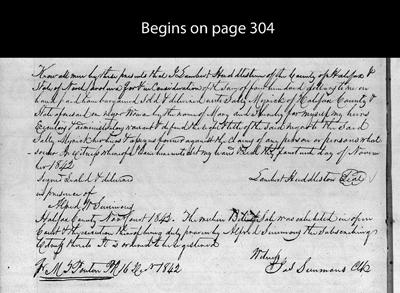 Begins on page 304
Know all men by these presents that I Lambert Huddleston of the County of Halifax &
State of North Carolina for & in Consideration of the Sum of four hundred dollars to me in
hand paid have bargained Sold & delivered unto Sally Myrick of Halifax County &
State aforesaid a negro Woman by the name of Mary and I hereby for myself my heirs
Executors & administrators warrant & defend the right title of the said negro to the Said
Sally Myrick her heirs & assigns forever against the claims of any person or persons what
soever In Witness whereof I have hereunto set my hand & Seal this day of Novem
ber 1842
Signed Sealed & delivered Lambert Huddleston Seal
in presence of
Alfred Simmons
Halifax County Nov Court 1842. The within Bill of Sale was exhibited in open
Court & the execution thereof being duly proven by Alfred Simmons the Subscribing
Witness thereto It is ordered to be registered
Witness
16 1842 Jas Simmons Clk